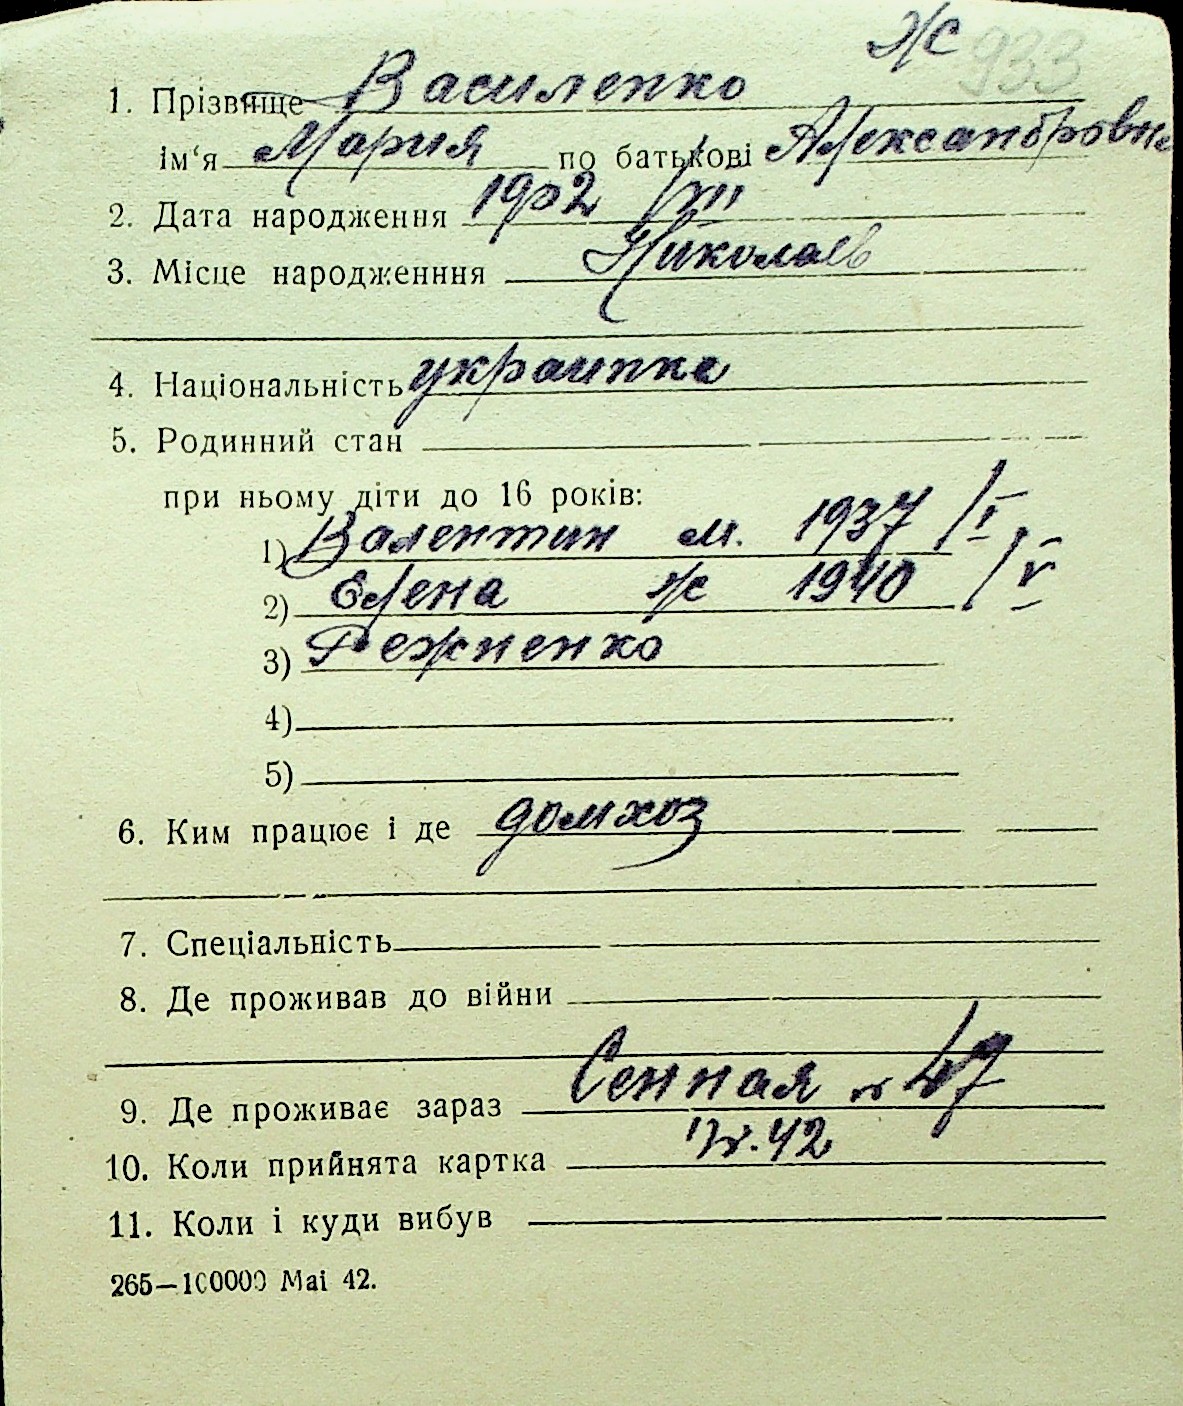 Ж 933
1. Прізвище Василенко
ім‘я Мария по батькові Александровна
2. Дата народження 1902 /XII
3. Місце народженння Николаев
4. Національність украинка
5. Родинний стан
при ньому діти до 16 років:
1) Валентин м. 1937 /I
2) Елена ж 1940 /V
3) Режненко
4)
5)
6. Ким працює і де домхоз
7. Спеціальність
8. Де проживав до війни
9. Де проживає зараз Сенная 47
10. Коли прийнята картка 42
11. Коли і куди вибув
265—100000 Mai 42.